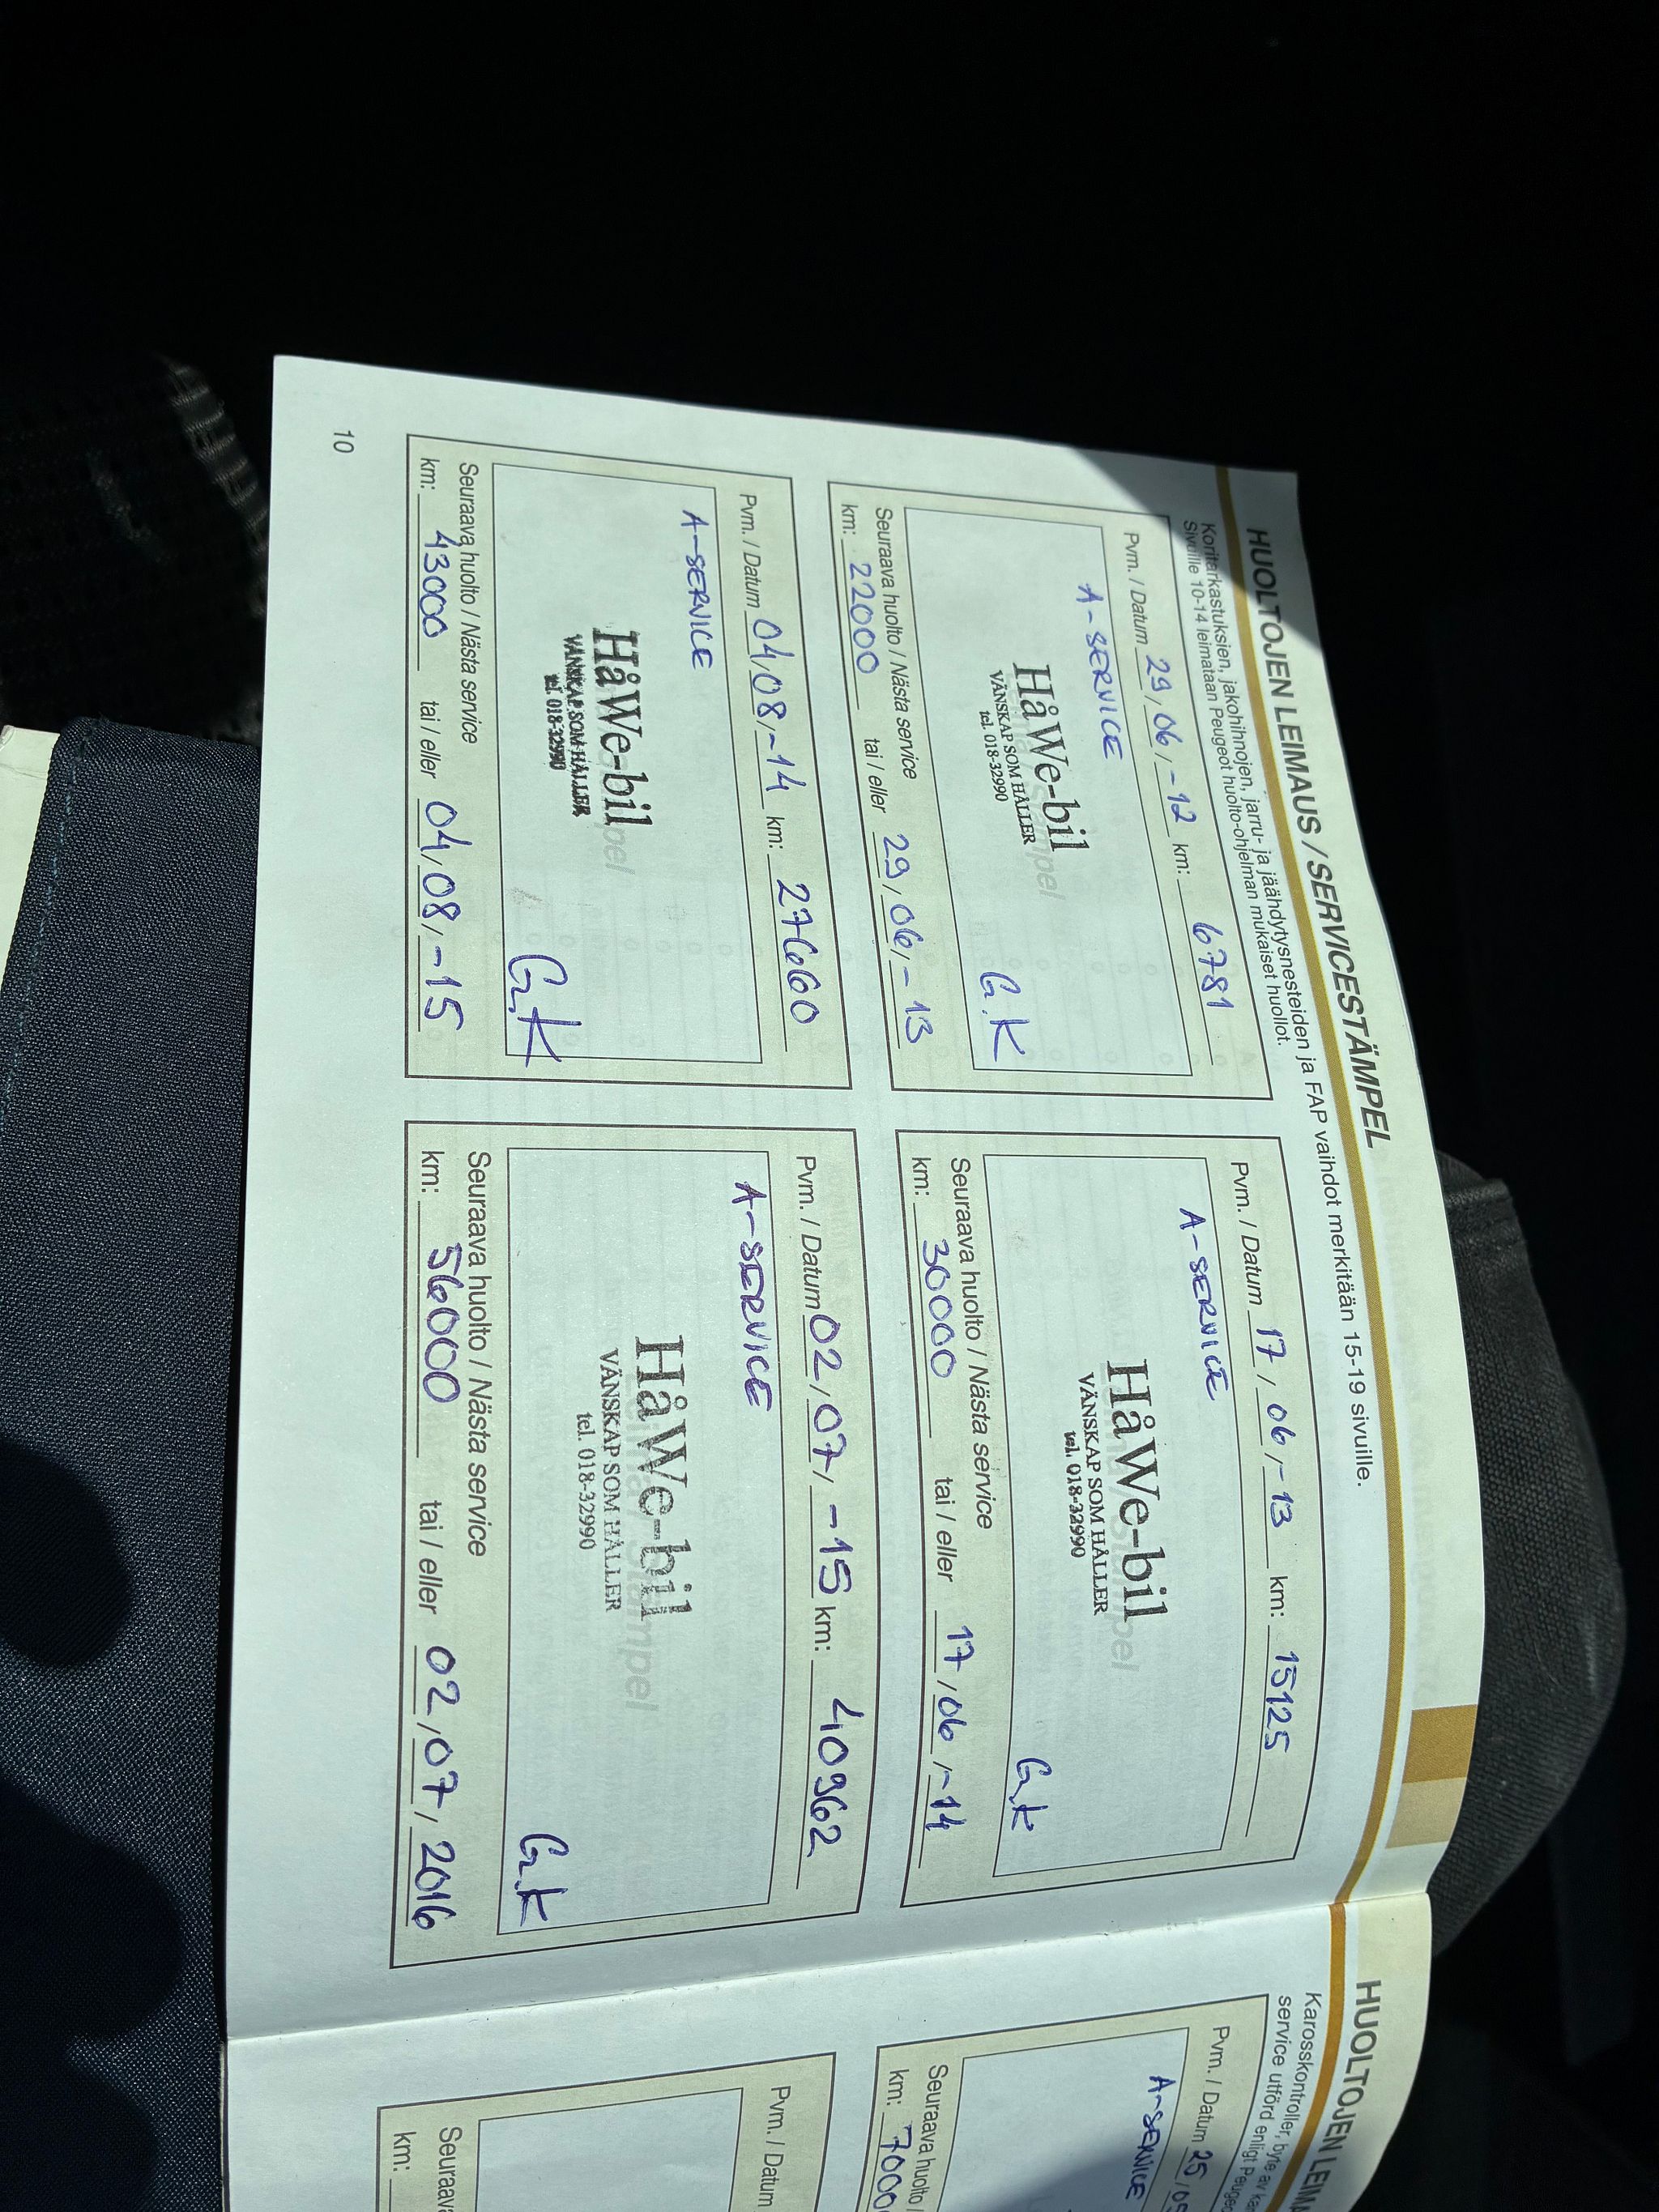 HUOLTOJEN LEIMAUS / SERVICESTÄMPEL
Koritarkastuksien, jakohihnojen, jarru- ja jäähdytysnesteiden ja FAP vaihdot merkitään 15-19 sivuille.
Sivuille 10-14 leimataan Peugeot huolto-ohjelman mukaiset huollot.
Pvm. / Datum 29,06,-12 km: 6781
A-SERVICE
HåWe-bil
VÄNSKAP SOM HÅLLER
tel. 018-32990
G.K
Seuraava huolto / Nästa service
km: 22000 tai / eller 29,06,-13
Pvm. / Datum 17,06,-13 km: 15125
A-SERVICE
HåWe-bil
VÄNSKAP SOM HÅLLER
tel. 018-32990
G.K
Seuraava huolto / Nästa service
km: 30000 tai / eller 17,06,-14
Pvm. / Datum 04,08,-14 km: 27660
A-SERVICE
HåWe-bil
VÄNSKAP SOM HÅLLER
tel. 018-32990
G.K
Seuraava huolto / Nästa service
km: 43000 tai / eller 04,08,-15
Pvm. / Datum 02,07,-15 km: 40962
A-SERVICE
HåWe-bil
VÄNSKAP SOM HÅLLER
tel. 018-32990
G.K
Seuraava huolto / Nästa service
km: 56000 tai / eller 02,07,2016
10
HUOLTOJEN
Karosskontroller, byte av
service utförd enligt
Pvm. / Datum 25
A-SERVICE
Seuraava huolto /
km:
Pvm. / Datum
Seuraava
km: